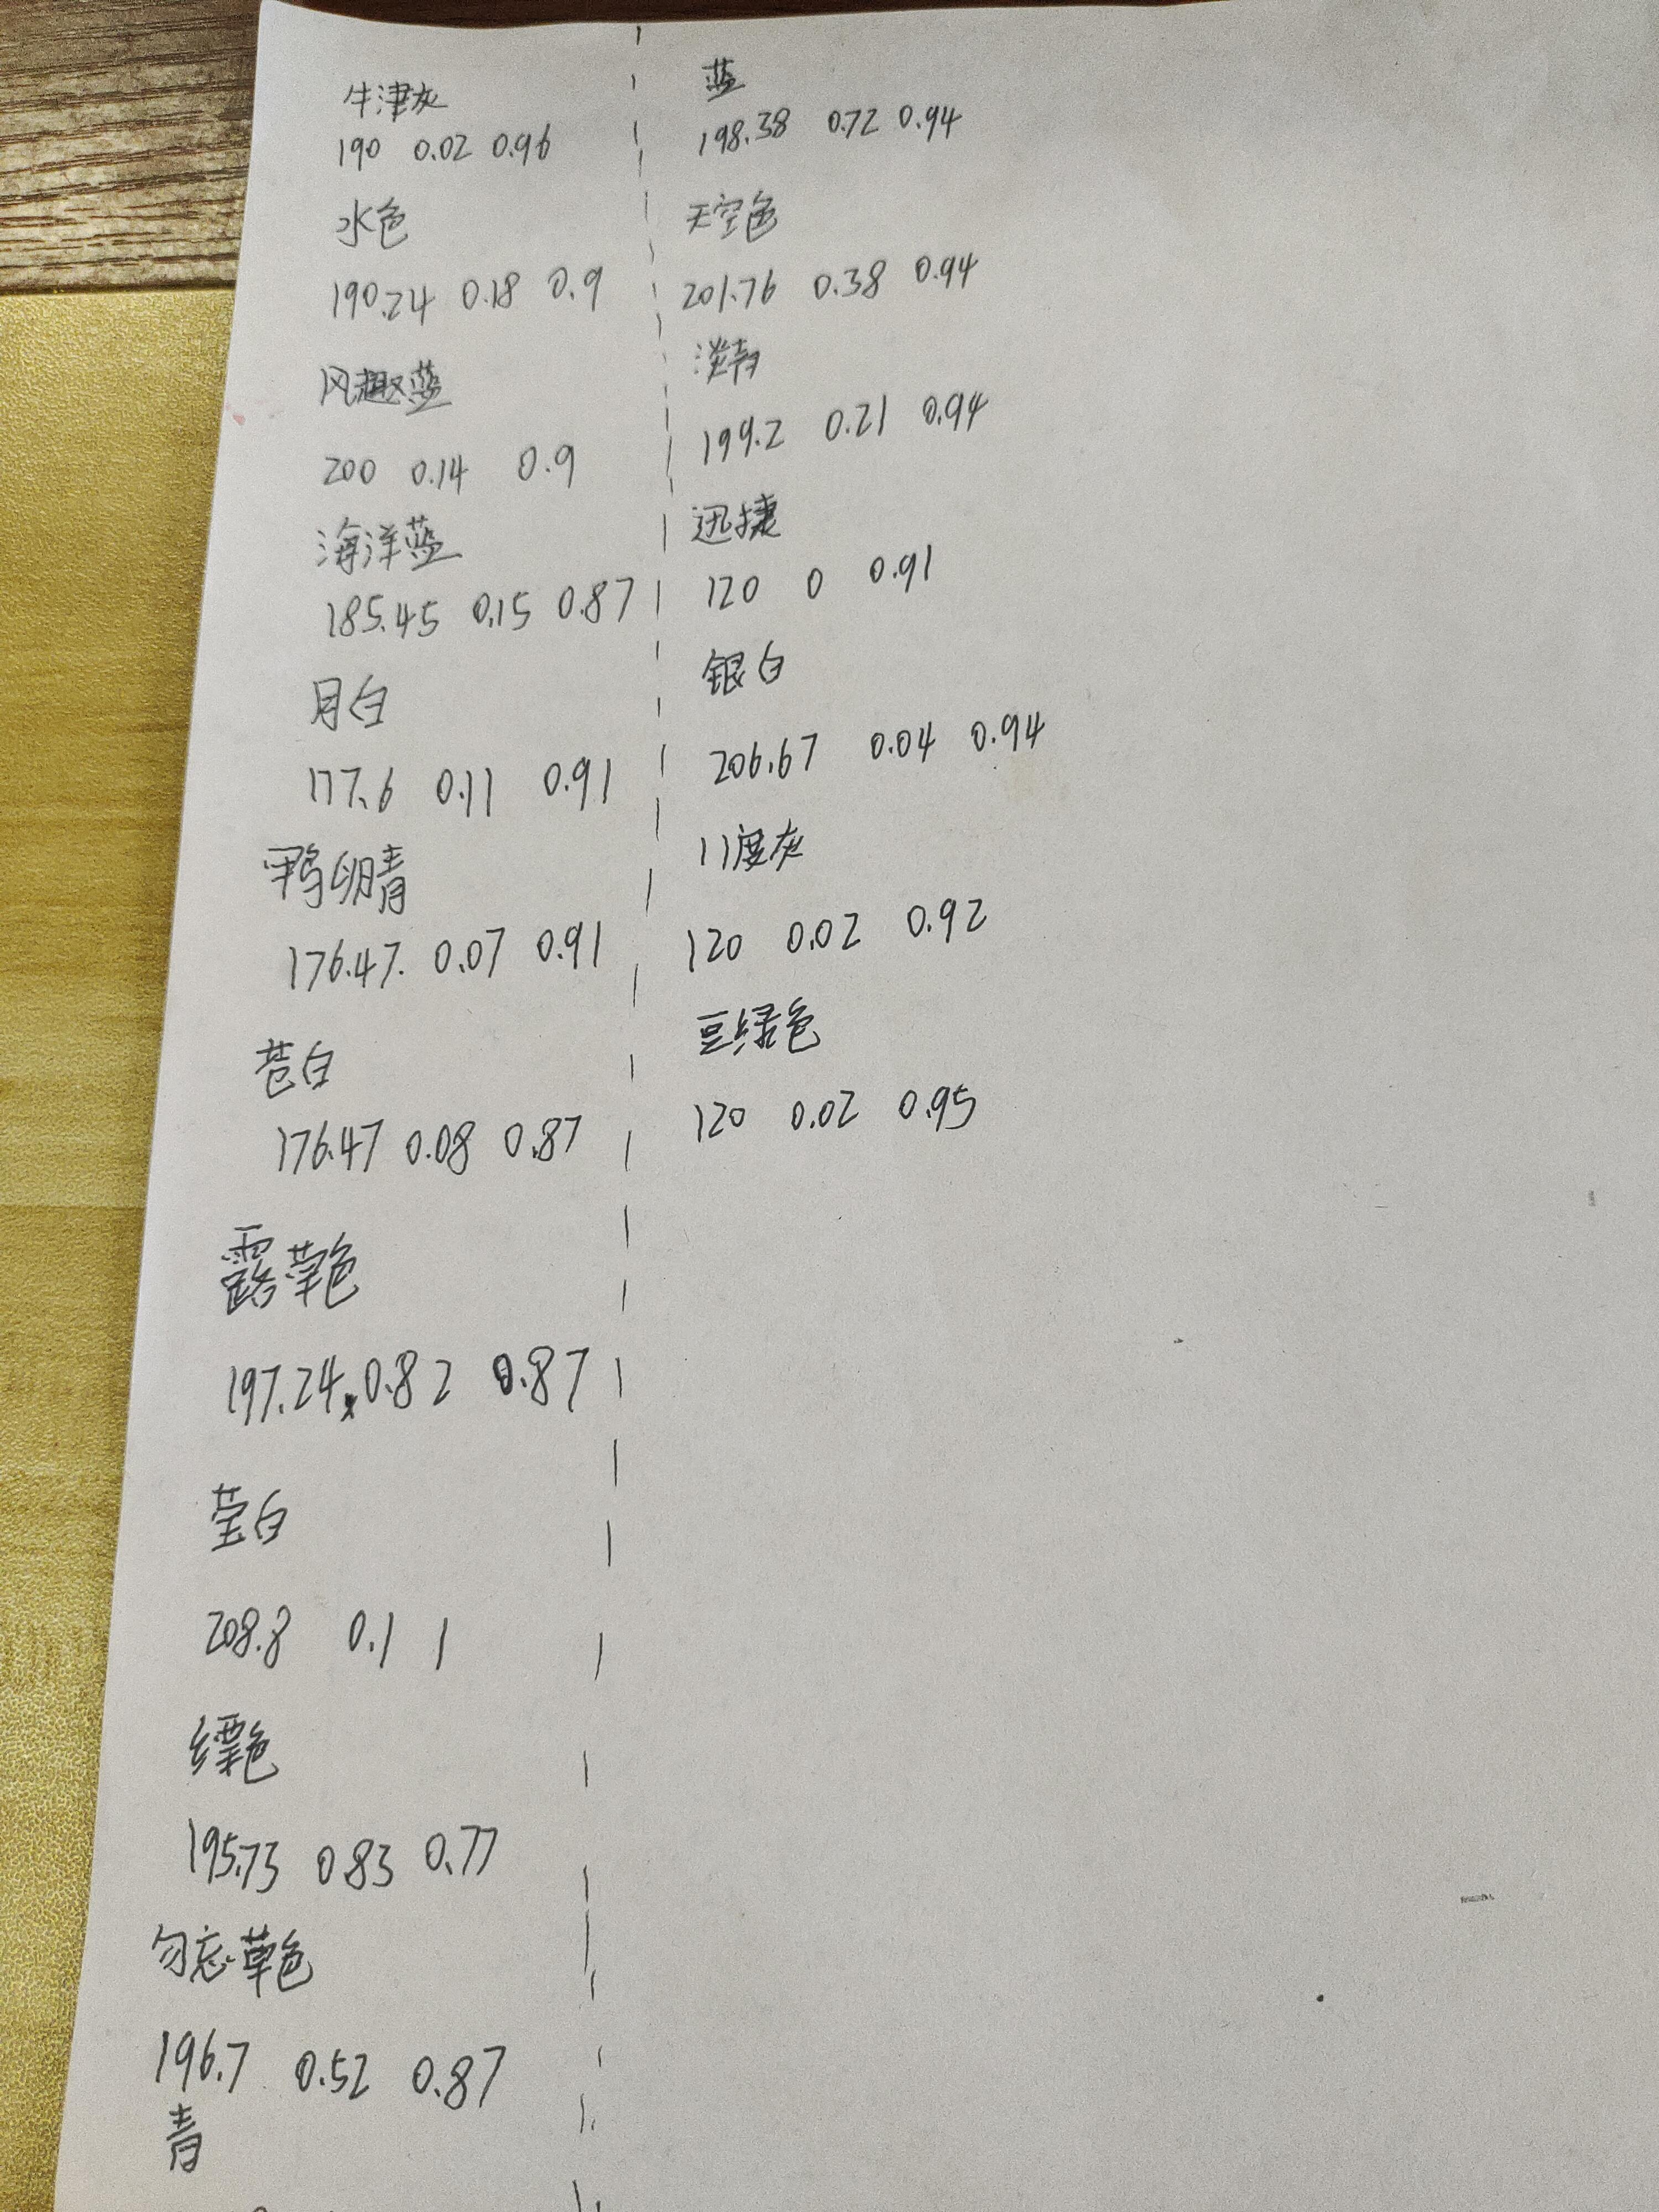 牛津灰
190 0.02 0.96
水色
190.24 0.18 0.9
风趣蓝
200 0.14 0.9
海洋蓝
185.45 0.15 0.87
月白
177.6 0.11 0.91
鸭卵青
176.47. 0.07 0.91
苍白
176.47 0.08 0.87
露草色
197.24 0.82 0.87
莹白
208.8 0.1 1
缥色
195.73 0.83 0.77
勿忘草色
196.7 0.52 0.87
青
蓝
198.38 0.72 0.94
天空色
201.76 0.38 0.94
淡青
199.2 0.21 0.94
迅捷
120 0 0.91
银白
206.67 0.04 0.94
11度灰
120 0.02 0.92
豆绿色
120 0.02 0.95